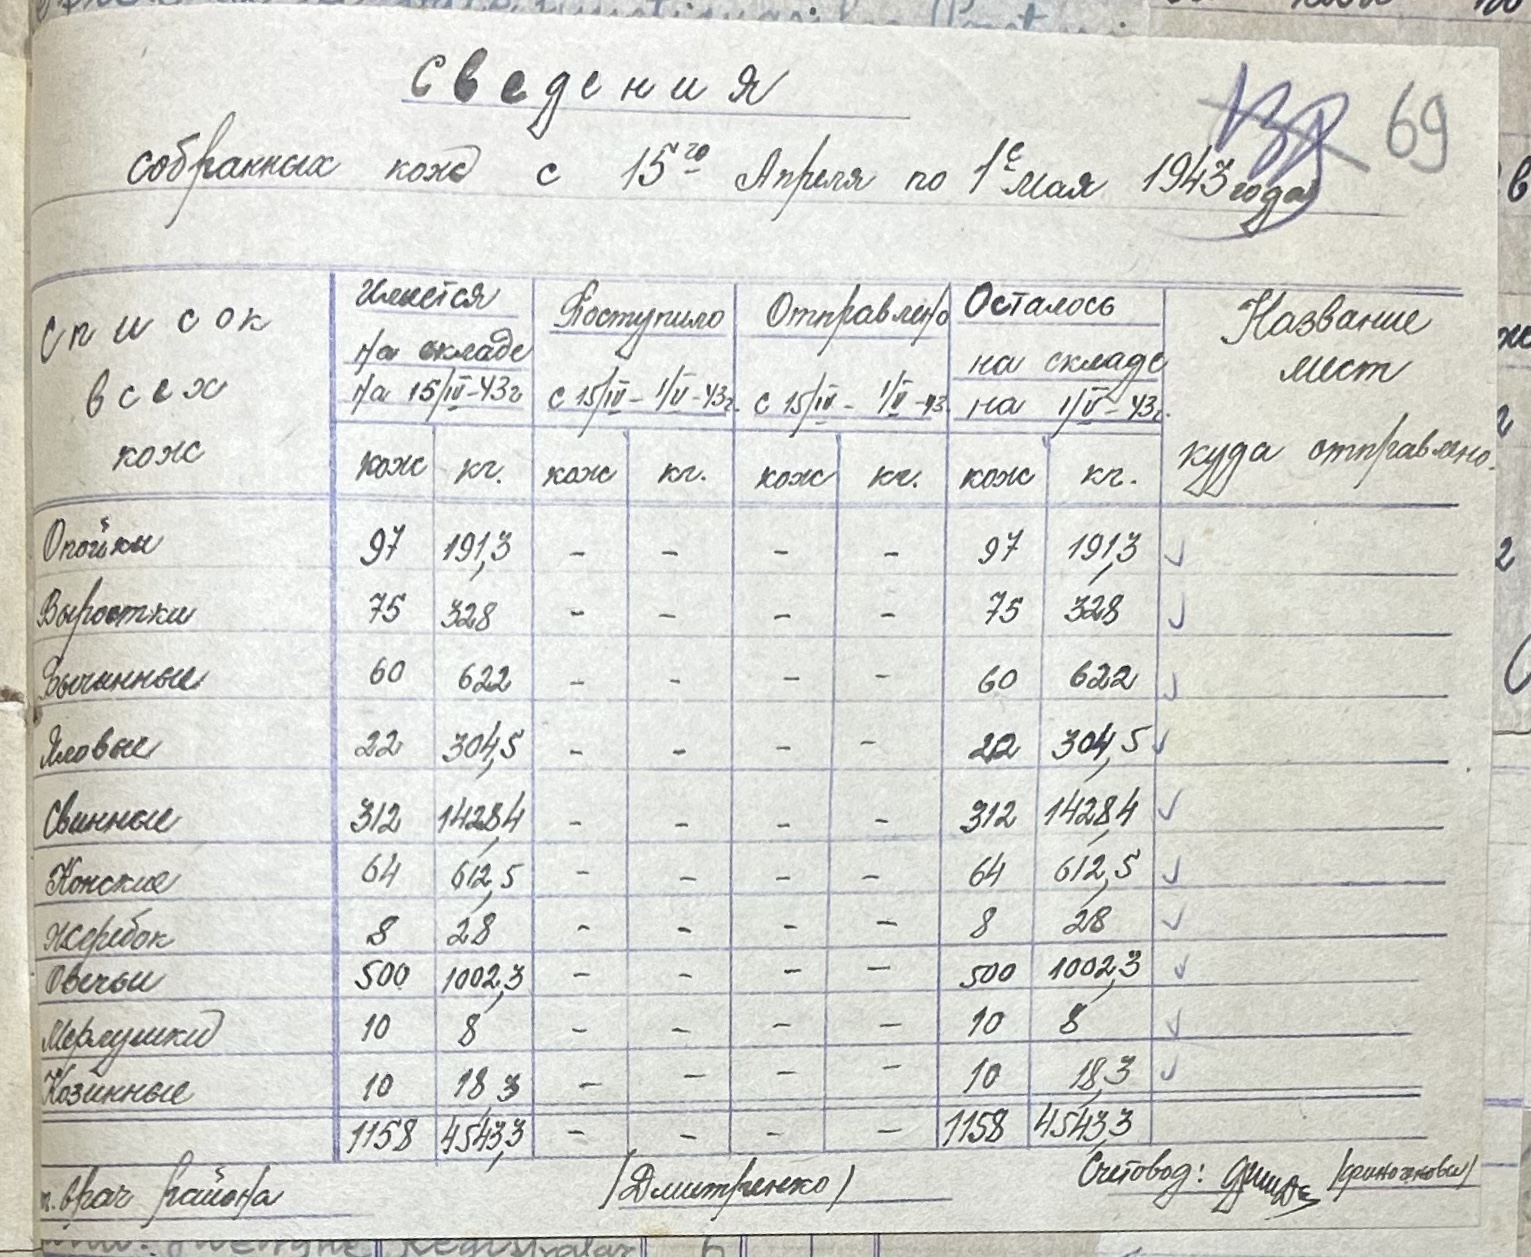 Сведения
69
собранных кож с 15го Апреля по 1е Мая 1943 года
Список всех кож | Имеется на складе на 15/IV-43г | Поступило с 15/IV - 1/V-43г. | Отправлено с 15/IV - 1/V-43 | Осталось на складе на 1/V-43г. | Название мест куда отправлено.
кож | кг. | кож | кг. | кож | кг. | кож | кг.
Опойки 97 191,3 - - - - 97 191,3 ✓
Выростки 75 328 - - - - 75 328 ✓
Бычинные 60 622 - - - - 60 622 ✓
Яловые 22 304,5 - - - - 22 304,5 ✓
Свинные 312 1428,4 - - - - 312 1428,4 ✓
Конские 64 612,5 - - - - 64 612,5 ✓
Жеребок 8 28 - - - - 8 28 ✓
Овечьи 500 1002,3 - - - - 500 1002,3 ✓
Мерлушки 10 8 - - - - 10 8 ✓
Козинные 10 18,3 - - - - 10 18,3 ✓
1158 4543,3 - - - - 1158 4543,3
врач района /Дмитренко/ Счетовод: